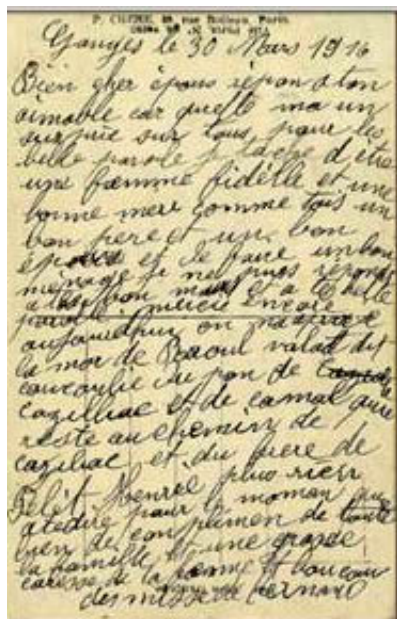 P. CHENE, 48, rue Boileau, Paris
Ganges le 30 Mars 1916
Bien cher épous répon a ton
aimable car quelle ma un
surprie sur tous pour les
belle parole je tache d'être
une fœmme fidelle et une
bonne mere comme tois un
bon pere et un bon
épous et de faire un bon
ménage je ne puis répondre
a bon et a te belle
parole merci encore
aujourduhui on
la mor de Raoul valat dit
du pon de
cazilhac et de camal qui
reste au chemin de
cazilac et du frere de
Petit Henrel plus rien
a tedire pour le moman que
bien de con plimen de toute
la famille et une grosse
caresse de ta femme et boucau
des misse de bernard